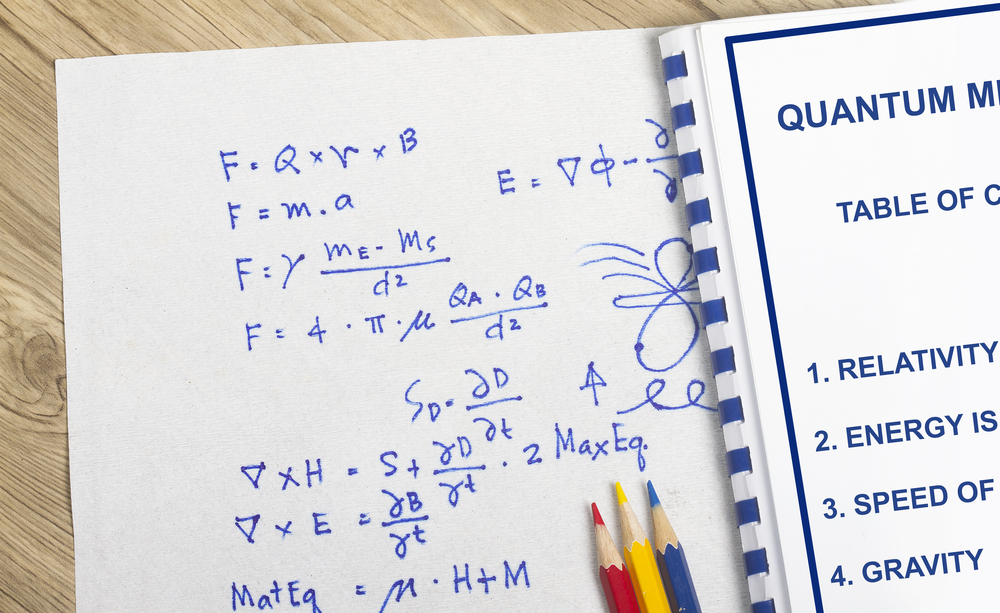 F = Q × v × B
F = m . a
F = γ (mE - Ms) / d2
F = 4 · π · μ (QA · QB) / d2
E = ∇ φ - ∂ / ∂
SD = ∂D / ∂t
∇ × H = S + ∂D / ∂t . 2 Max Eq.
∇ × E = ∂B / ∂t
Mat Eq = μ · H + M
QUANTUM
TABLE OF C
1. RELATIVITY
2. ENERGY IS
3. SPEED OF
4. GRAVITY